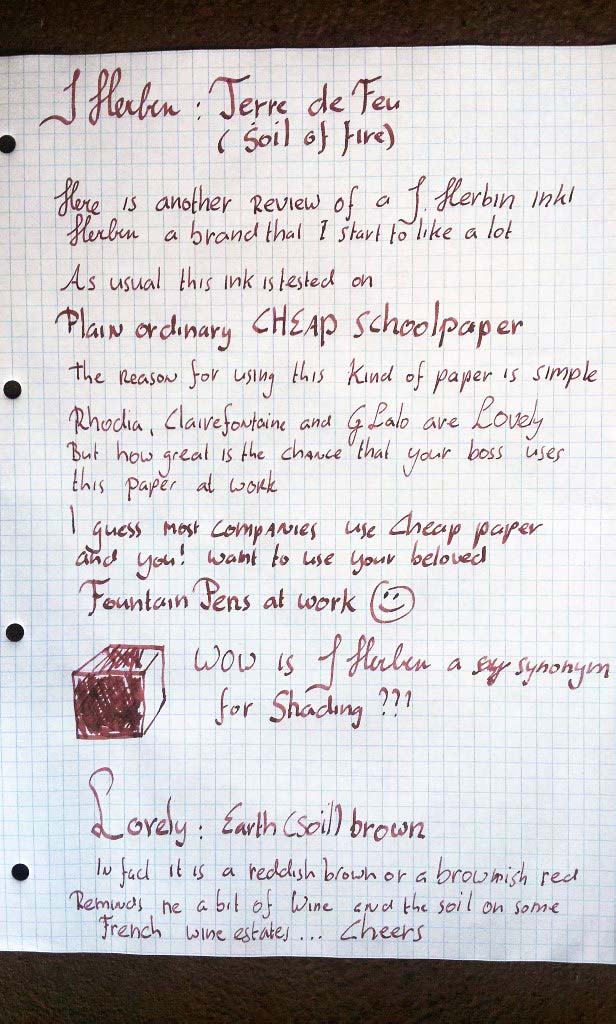 J Herbin : Terre de Feu
( Soil of fire)
Here is another Review of a J. Herbin ink!
Herbin a brand that I start to like a lot
As usual this ink is tested on
Plain ordinary CHEAP schoolpaper
the Reason for using this kind of paper is simple
Rhodia, Clairefontaine and G Lalo are Lovely
But how great is the chance that your boss uses
this paper at work
I guess most companies use cheap paper
and you! want to use your beloved
Fountain Pens at work
WOW is J Herbin a synonym
for Shading ???
Lovely : Earth (soil) brown
In fact it is a reddish brown or a brownish red
Reminds me a bit of Wine and the soil on some
French wine estates... Cheers